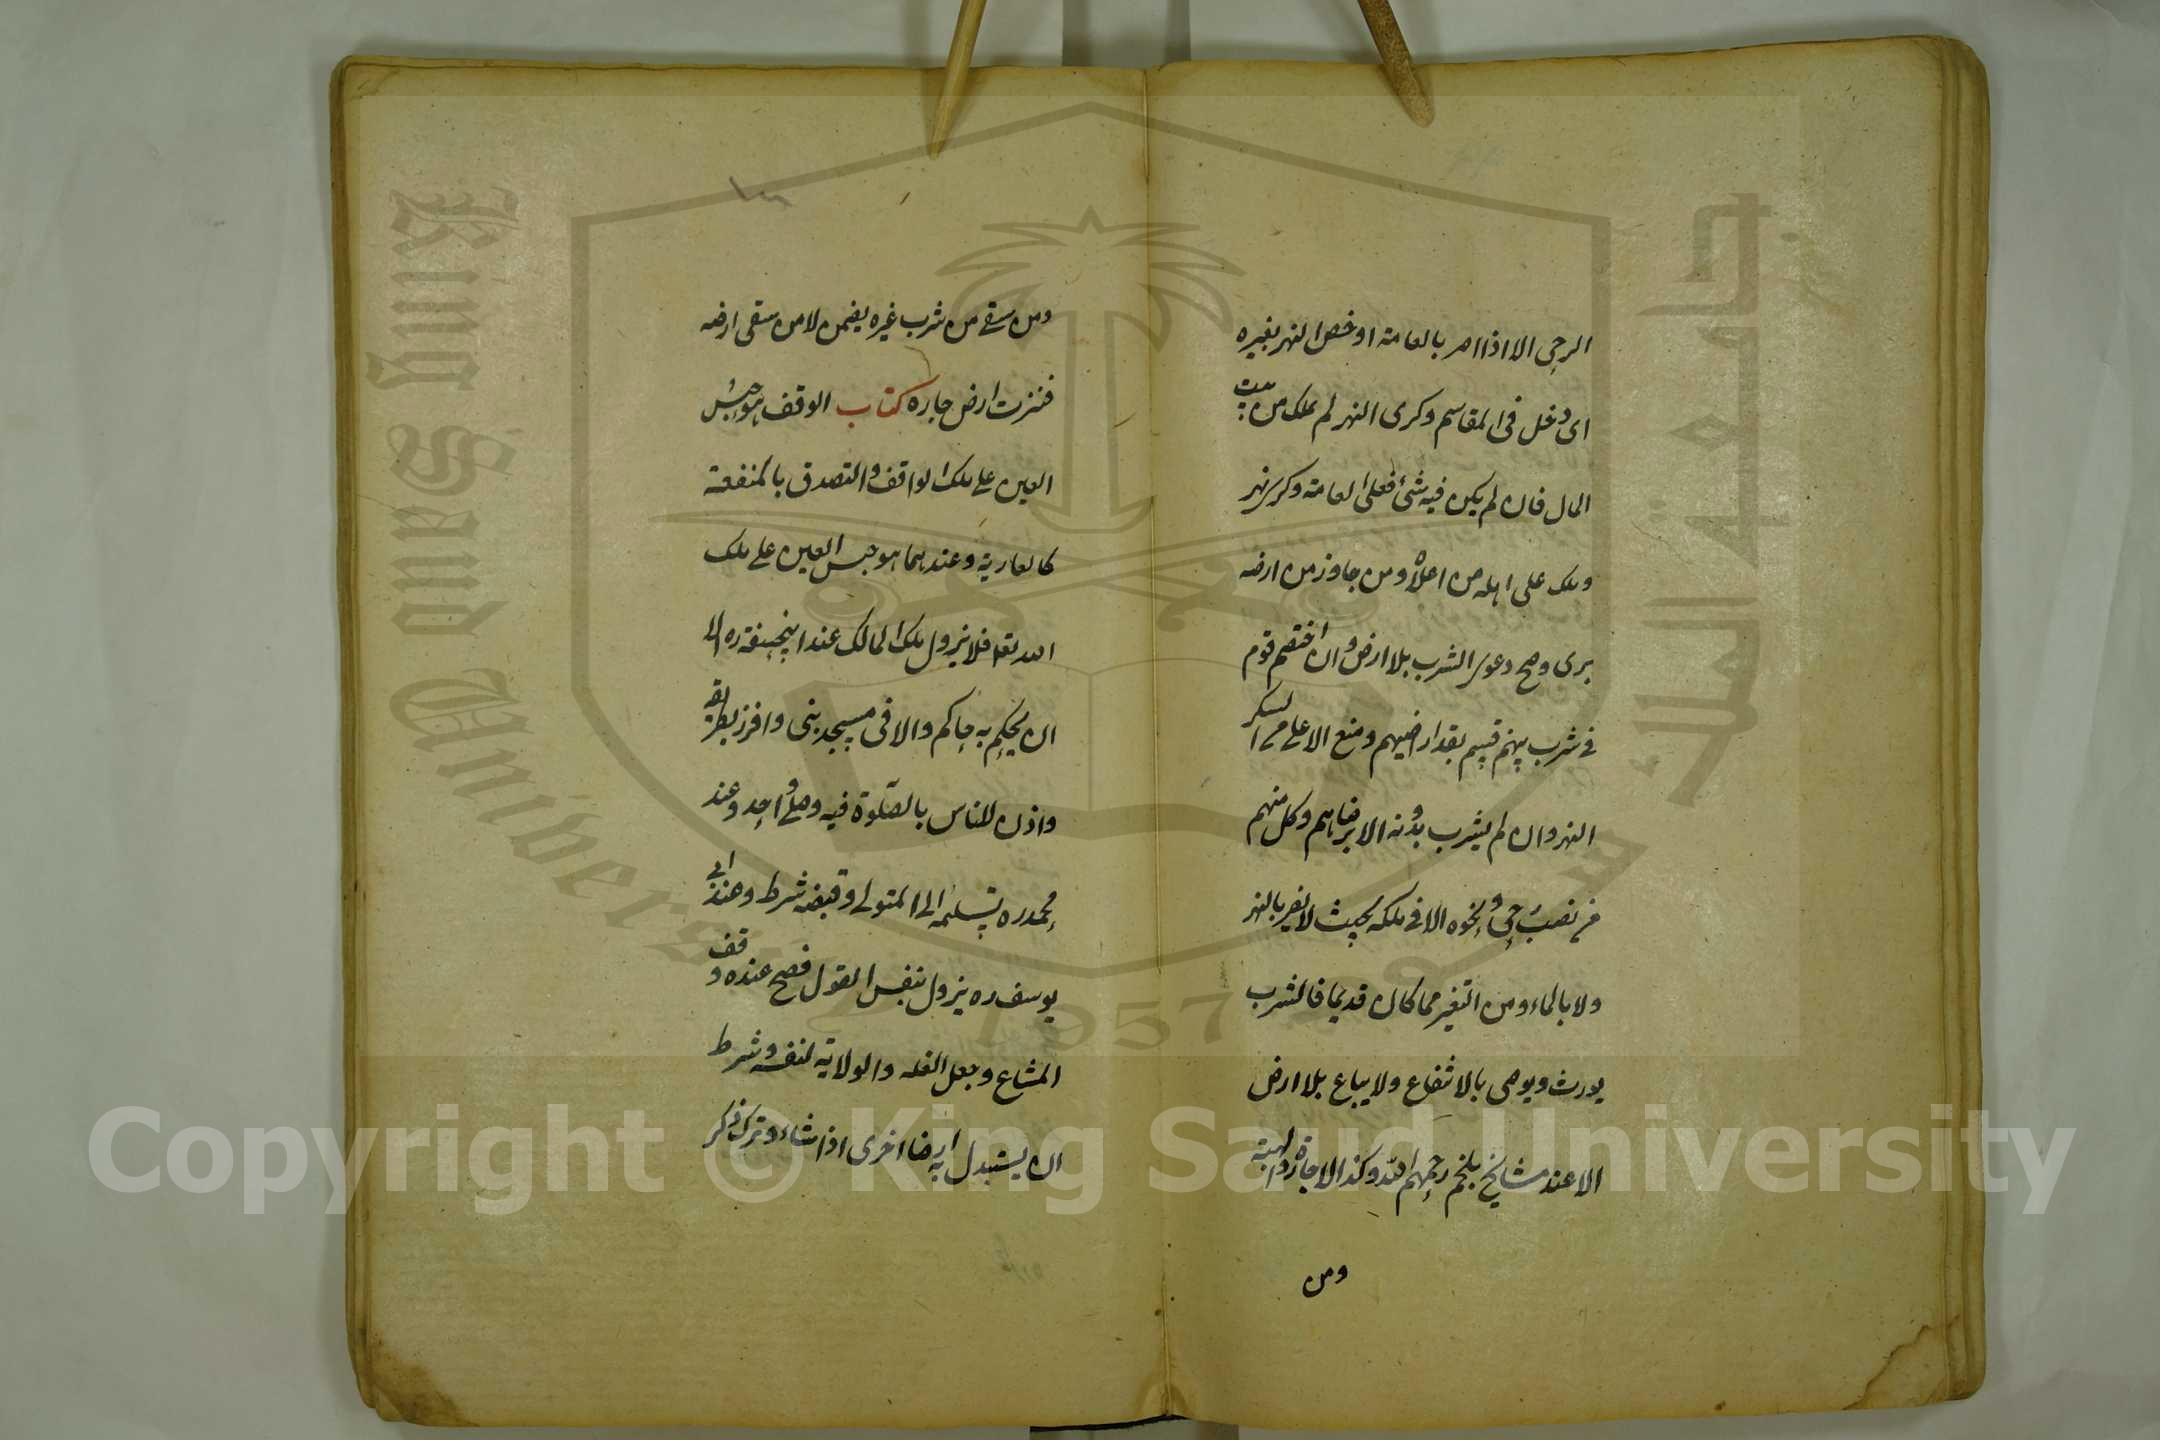 الرحى الا اذا اضر بالعامة او خص النهر بغيره
اى دخل فى المقاسم وكرى النهر لم يملك من بيت
المال فان لم يكن فيه شئ فعلى العامة وكرى نهر
وملك على اهله من اعلاه ومن جاوز من ارضه
برى وصح دعوى الشرب بلا ارض وان اختصم قوم
فى شرب بينهم قسم بقدر اراضيهم ومنع الاعلى من السكر
النهر وان لم يشرب بدونه الا برضاهم وكل منهم
من نصب رحى ونحوه الا فى ملكه بحيث لا يضر بالنهر
ولا بالماء ومن التغير مما كان قديما فالشرب
يورث ويوصى بالانتفاع ولا يباع بلا ارض
الا عند مشايخ بلخ رحمهم الله وكذا الاجارة والهبة
ومن
ومن سقى من شرب غيره يضمن لا من سقى ارضه
فنزت ارض جاره كتاب الوقف هو حبس
العين على ملك الواقف والتصدق بالمنفعة
كالعارية وعندهما هو حبس العين على ملك
الله تعا فلا يزول ملك المالك عند ابيحنيفة ره الا
ان يحكم به حاكم والا فى مسجد بنى وافرز بطريقه
واذن للناس بالصلوة فيه وصلى واحد وعند
محمد ره تسليمه الى المتولى وقبضه شرط وعند ابى
يوسف ره يزول بنفس القول فصح عنده وقف
المشاع وجعل الغله والولاية لنفسه وشرط
ان يستبدل به ارضا اخرى اذا شاء وترك ذكر
Copyright © King Saud University
King Saud University
جامعة الملك سعود
1957